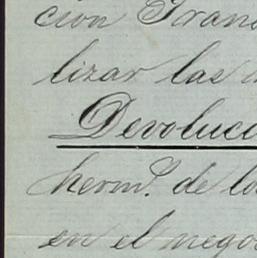 cion Fran
lizar las d
Devoluci
herm.ᵒ de lo
en el nego